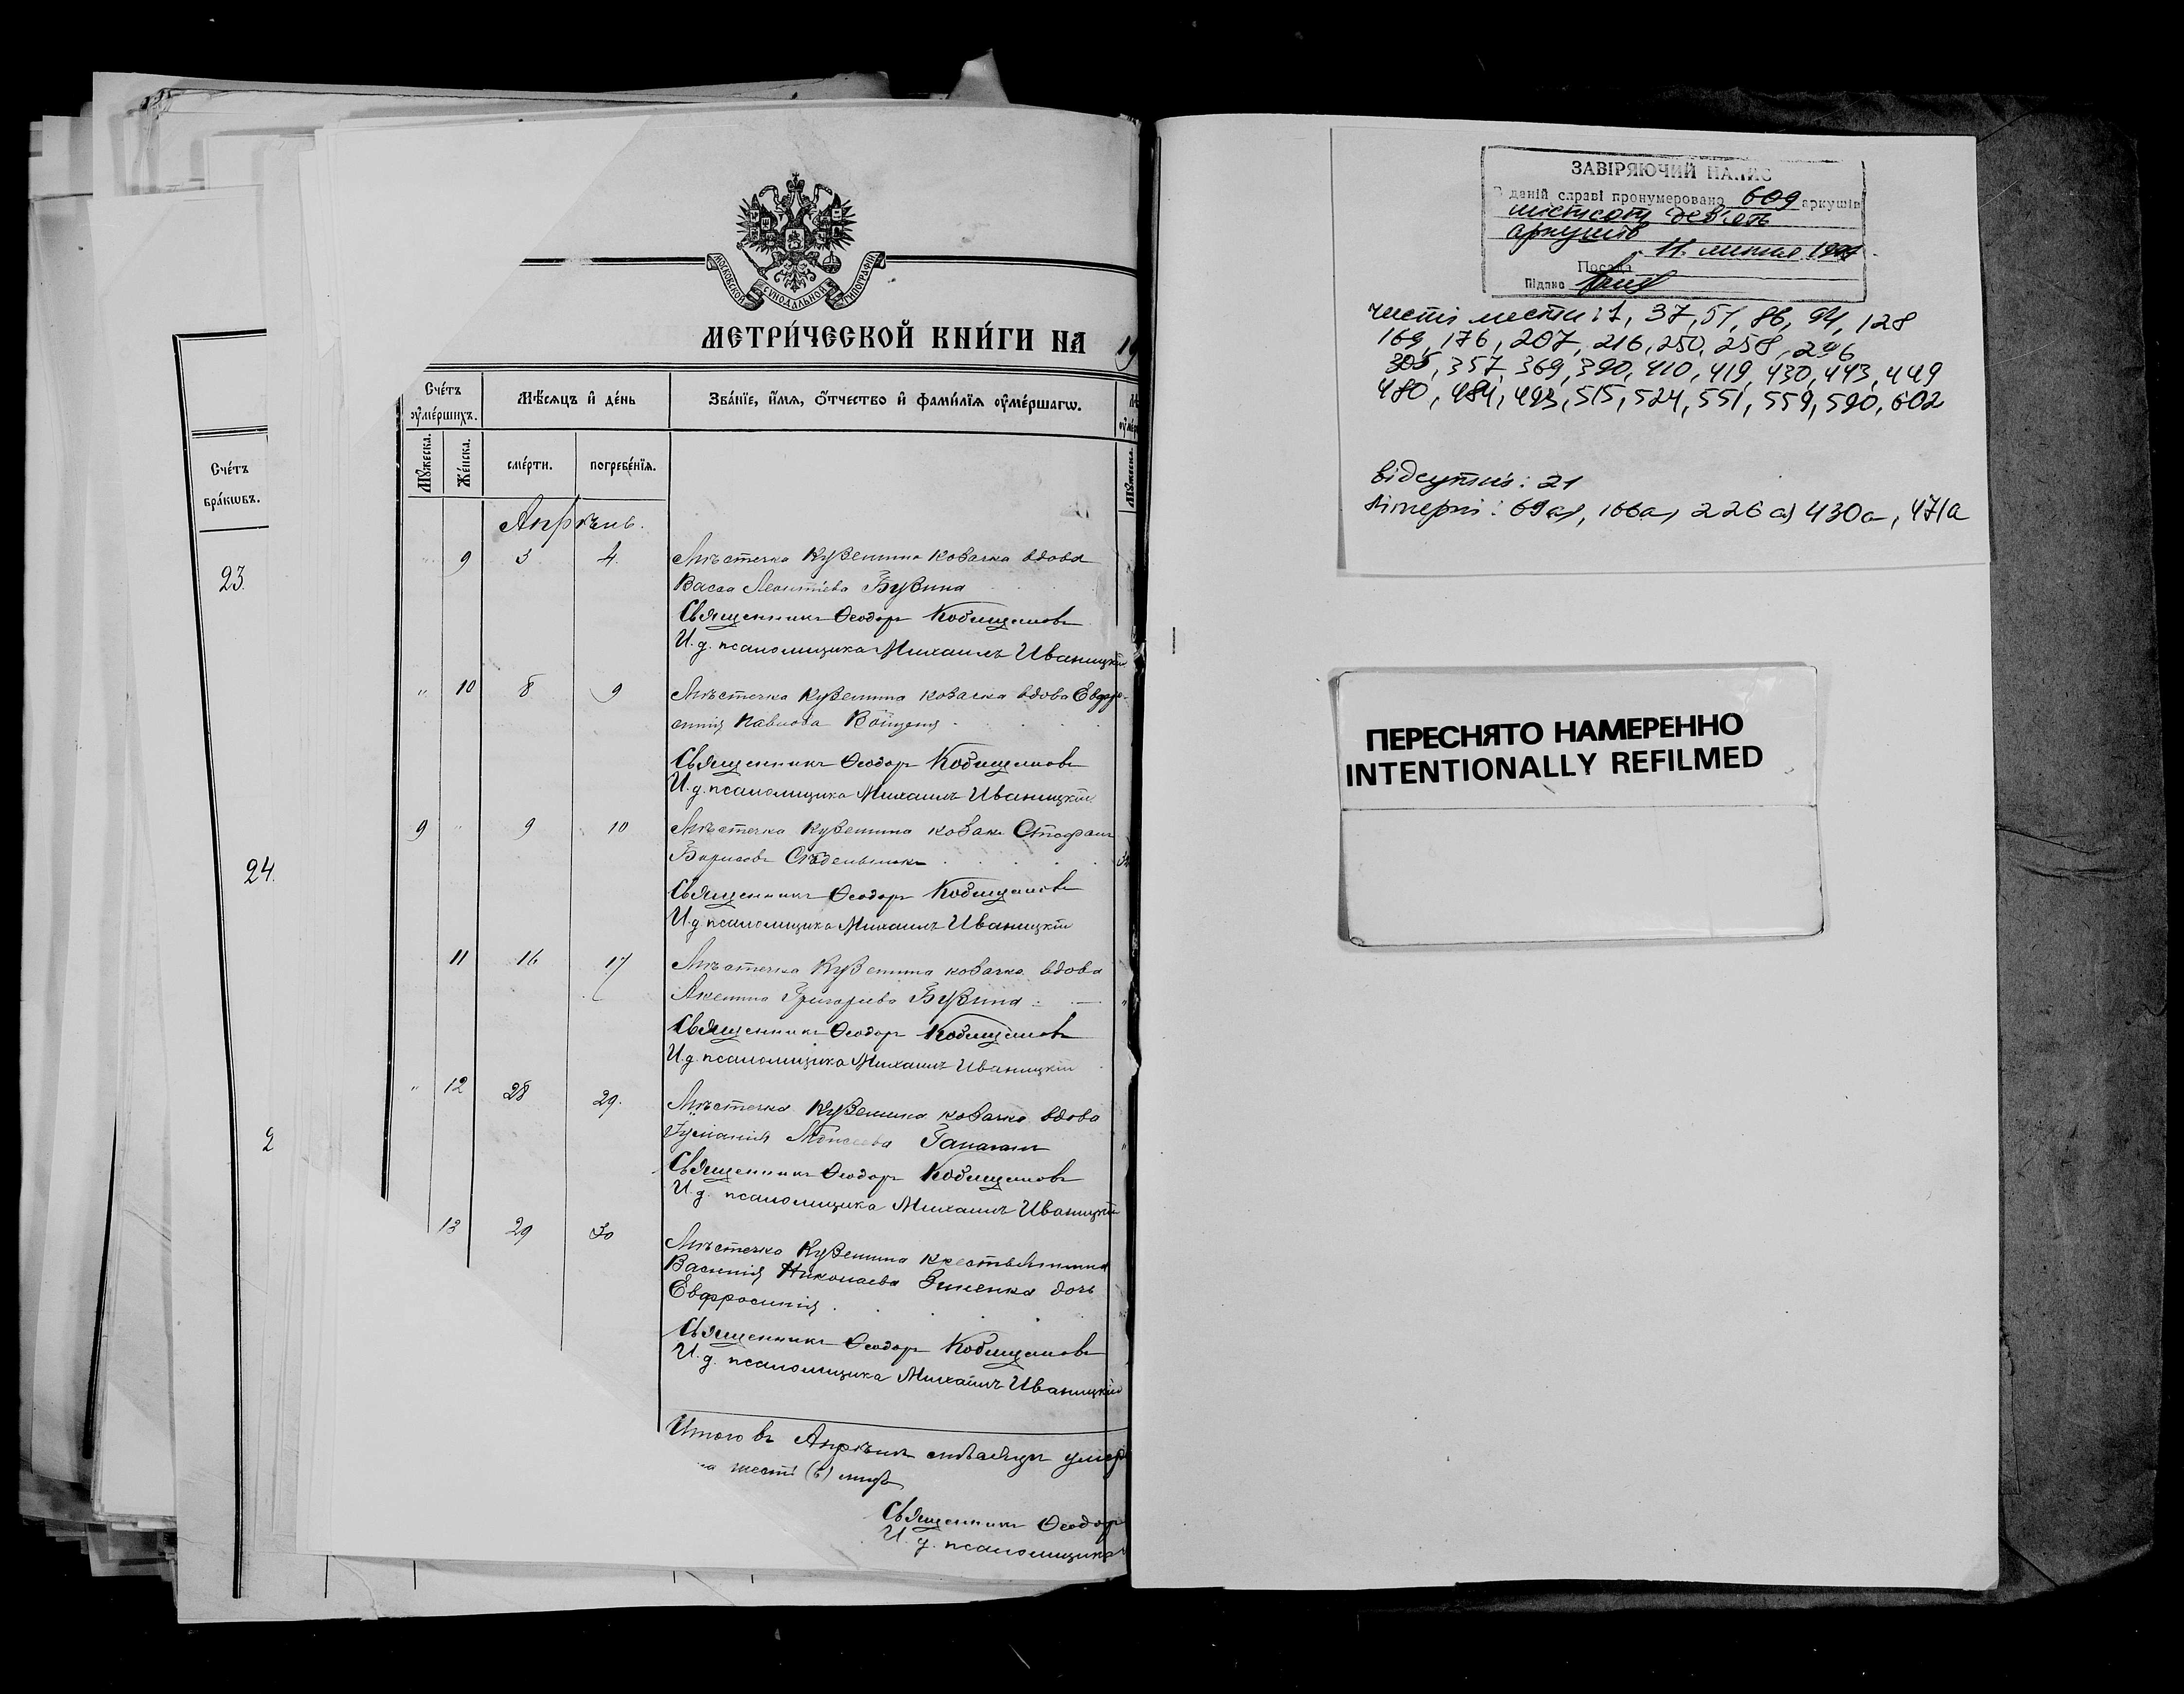 МОСКОВСКОЙ СѴНОДАЛЬНОЙ ТИПОГРАФІИ
МЕТРИ́ЧЕСКОЙ КНИ́ГИ НА 19
Сче́тъ ᲂу҆ме́ршихъ.
Мꙋ́жеска.
Же́нска.
Мѣ́сяцъ и҆ де́нь
сме́рти.
погребе́нїѧ.
Зва́нїе, и҆́мѧ, ѻ҆́тчество и҆ фами́лїѧ ᲂу҆ме́ршагѡ.
Сче́тъ бра́кѡвъ.
23.
24.
2
Апрѣль.
9 3 4.
Мѣстечка Куземина козачка вдова
Васса Леонтіева Бузина
Священникъ Ѳеодоръ Кобищановъ
И.д. псаломщика Михаилъ Иваницкій
" 10 8 9
Мѣстечка Куземина козачка вдова Евфро-
синія Павлова
Священникъ Ѳеодоръ Кобищановъ
И.д. псаломщика Михаилъ Иваницкій
9 " 9 10
Мѣстечка Куземина козакъ Стефанъ
Борисовъ
Священникъ Ѳеодоръ Кобищановъ
И.д. псаломщика Михаилъ Иваницкій
11 16 17
Мѣстечка Куземина козачка вдова
Григорьева Бузина
Священникъ Ѳеодоръ Кобищановъ
И.д. псаломщика Михаилъ Иваницкій
" 12 28 29.
Мѣстечка Куземина козачка вдова
Моисеева
Священникъ Ѳеодоръ Кобищановъ
И.д. псаломщика Михаилъ Иваницкій
13 29 30
Мѣстечка Куземина крестьянина
Василія Николаева Зиненка дочь
Евфросинія
Священникъ Ѳеодоръ Кобищановъ
И.д. псаломщика Михаилъ Иваницкій
Итого въ Апрѣлѣ мѣсяцѣ умер
шесть (6) лицъ
Священникъ Ѳеодоръ
И.д. псаломщика
ЗАВІРЯЮЧИЙ НАПИС
В даній справі пронумеровано 609 аркушів
шістсот дев'ять
аркушів
Посада
Підпис
чисті листи: 1, 37, 51, 86, 94, 128
169, 176, 207, 216, 250, 258, 296
305, 357, 369, 390, 410, 419, 430, 443, 449
480, 484, 493, 515, 524, 551, 559, 590, 602
відсутній: 21
літерні: 69а, 166а, 226а, 430а, 471а
ПЕРЕСНЯТО НАМЕРЕННО
INTENTIONALLY REFILMED